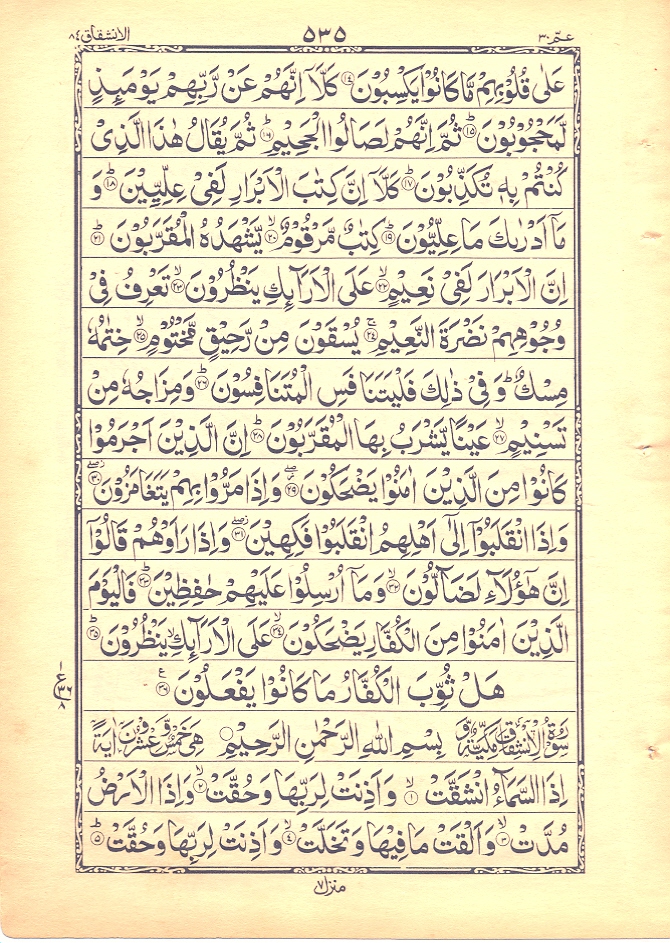 عمّ ۳۰
۵۳۵
الانشقاق ۸۴
عَلٰى قُلُوْبِهِمْ مَّا كَانُوْا يَكْسِبُوْنَ ۝۱۴ كَلَّاۤ اِنَّهُمْ عَنْ رَّبِّهِمْ يَوْمَىِٕذٍ
لَّمَحْجُوْبُوْنَ ؕ۝۱۵ ثُمَّ اِنَّهُمْ لَصَالُوا الْجَحِيْمِ ؕ۝۱۶ ثُمَّ يُقَالُ هٰذَا الَّذِىْ
كُنْتُمْ بِهٖ تُكَذِّبُوْنَ ؕ۝۱۷ كَلَّاۤ اِنَّ كِتٰبَ الْاَبْرَارِ لَفِىْ عِلِّيِّيْنَ ؕ۝۱۸ وَ
مَاۤ اَدْرٰىكَ مَا عِلِّيُّوْنَ ؕ۝۱۹ كِتٰبٌ مَّرْقُوْمٌ ۙ۝۲۰ يَّشْهَدُهُ الْمُقَرَّبُوْنَ ؕ۝۲۱
اِنَّ الْاَبْرَارَ لَفِىْ نَعِيْمٍ ۙ۝۲۲ عَلَى الْاَرَآىِٕكِ يَنْظُرُوْنَ ۙ۝۲۳ تَعْرِفُ فِىْ
وُجُوْهِهِمْ نَضْرَةَ النَّعِيْمِ ۚ۝۲۴ يُسْقَوْنَ مِنْ رَّحِيْقٍ مَّخْتُوْمٍ ۙ۝۲۵ خِتٰمُهٗ
مِسْكٌ ؕ وَ فِىْ ذٰلِكَ فَلْيَتَنَافَسِ الْمُتَنَافِسُوْنَ ؕ۝۲۶ وَ مِزَاجُهٗ مِنْ
تَسْنِيْمٍ ۙ۝۲۷ عَيْنًا يَّشْرَبُ بِهَا الْمُقَرَّبُوْنَ ؕ۝۲۸ اِنَّ الَّذِيْنَ اَجْرَمُوْا
كَانُوْا مِنَ الَّذِيْنَ اٰمَنُوْا يَضْحَكُوْنَ ۖ۝۲۹ وَاِذَا مَرُّوْا بِهِمْ يَتَغَامَزُوْنَ ۖ۝۳۰
وَاِذَا انْقَلَبُوْۤا اِلٰٓى اَهْلِهِمُ انْقَلَبُوْا فَكِهِيْنَ ۖ۝۳۱ وَاِذَا رَاَوْهُمْ قَالُوْۤا
اِنَّ هٰۤؤُلَآءِ لَضَآلُّوْنَ ۙ۝۳۲ وَمَاۤ اُرْسِلُوْا عَلَيْهِمْ حٰفِظِيْنَ ؕ۝۳۳ فَالْيَوْمَ
الَّذِيْنَ اٰمَنُوْا مِنَ الْكُفَّارِ يَضْحَكُوْنَ ۙ۝۳۴ عَلَى الْاَرَآىِٕكِ ۙ يَنْظُرُوْنَ ؕ۝۳۵
هَلْ ثُوِّبَ الْكُفَّارُ مَا كَانُوْا يَفْعَلُوْنَ ۝۳۶
سُوْرَةُ الْاِنْشِقَاقِ مَكِّيَّةٌ وَّ بِسْمِ اللهِ الرَّحْمٰنِ الرَّحِيْمِ ۝ هِىَ خَمْسٌ وَّعِشْرُوْنَ اٰيَةً
اِذَا السَّمَآءُ انْشَقَّتْ ۙ۝۱ وَاَذِنَتْ لِرَبِّهَا وَحُقَّتْ ۙ۝۲ وَاِذَا الْاَرْضُ
مُدَّتْ ۙ۝۳ وَاَلْقَتْ مَا فِيْهَا وَتَخَلَّتْ ۙ۝۴ وَاَذِنَتْ لِرَبِّهَا وَحُقَّتْ ؕ۝۵
منزل ۷